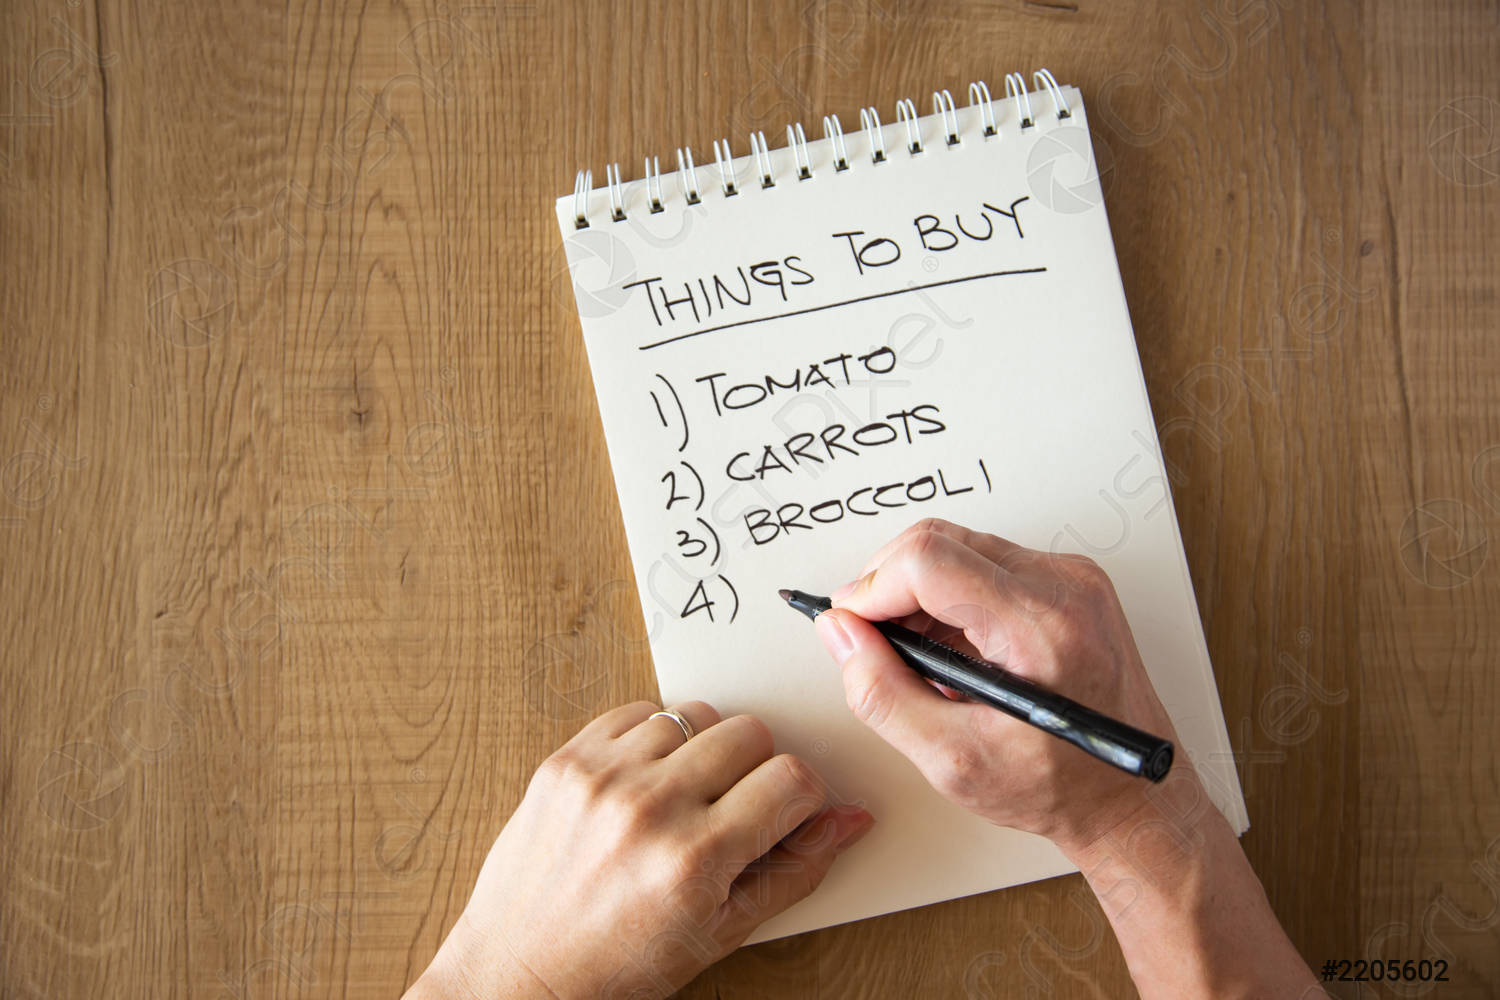 THINGS TO BUY
1) TOMATO
2) CARROTS
3) BROCCOLI
4)
crushpixel
#2205602